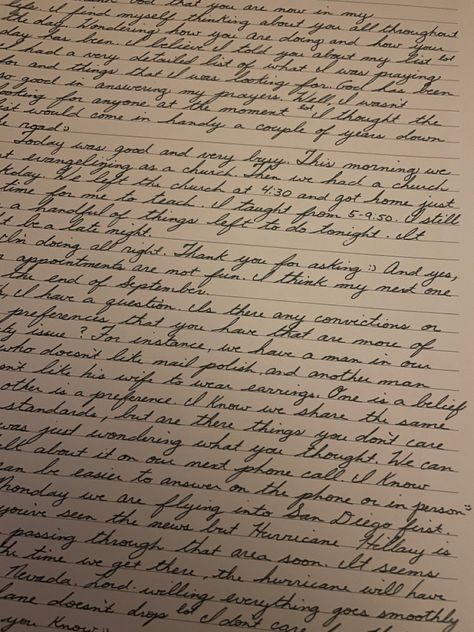 God that you are now in my
life. I find myself thinking about you all throughout
the day. Wondering how you are doing and how your
day has been. I believe I told you about my list
I had a very detailed list of what I was praying
for and things that I was looking for. God has been
so good in answering my prayers. Well, I wasn't
looking for anyone at the moment I thought the
list would come in handy a couple of years down
road :)
Today was good and very busy. This morning we
evangelizing as a church. Then we had a church
We left the church at 4:30 and got home just
time for me to teach. I taught from 5-9:50. I still
a handful of things left to do tonight. It
be a late night.
I'm doing all right. Thank you for asking :) And yes,
appointments are not fun. I think my next one
the end of September.
I have a question. Is there any convictions or
preferences that you have that are more of
issue? For instance, we have a man in our
who doesn't like nail polish and another man
like his wife to wear earrings. One is a belief
other is a preference. I know we share the same
standards, but are there things you don't care
was just wondering what you thought. We can
about it on our next phone call. I know
can be easier to answer on the phone or in person :)
Monday we are flying into San Diego first.
you've seen the news but Hurricane Hillary is
passing through that area soon. It seems
the time we get there, the hurricane will have
Nevada. Lord willing everything goes smoothly
doesn't drop I don't care
you know :)